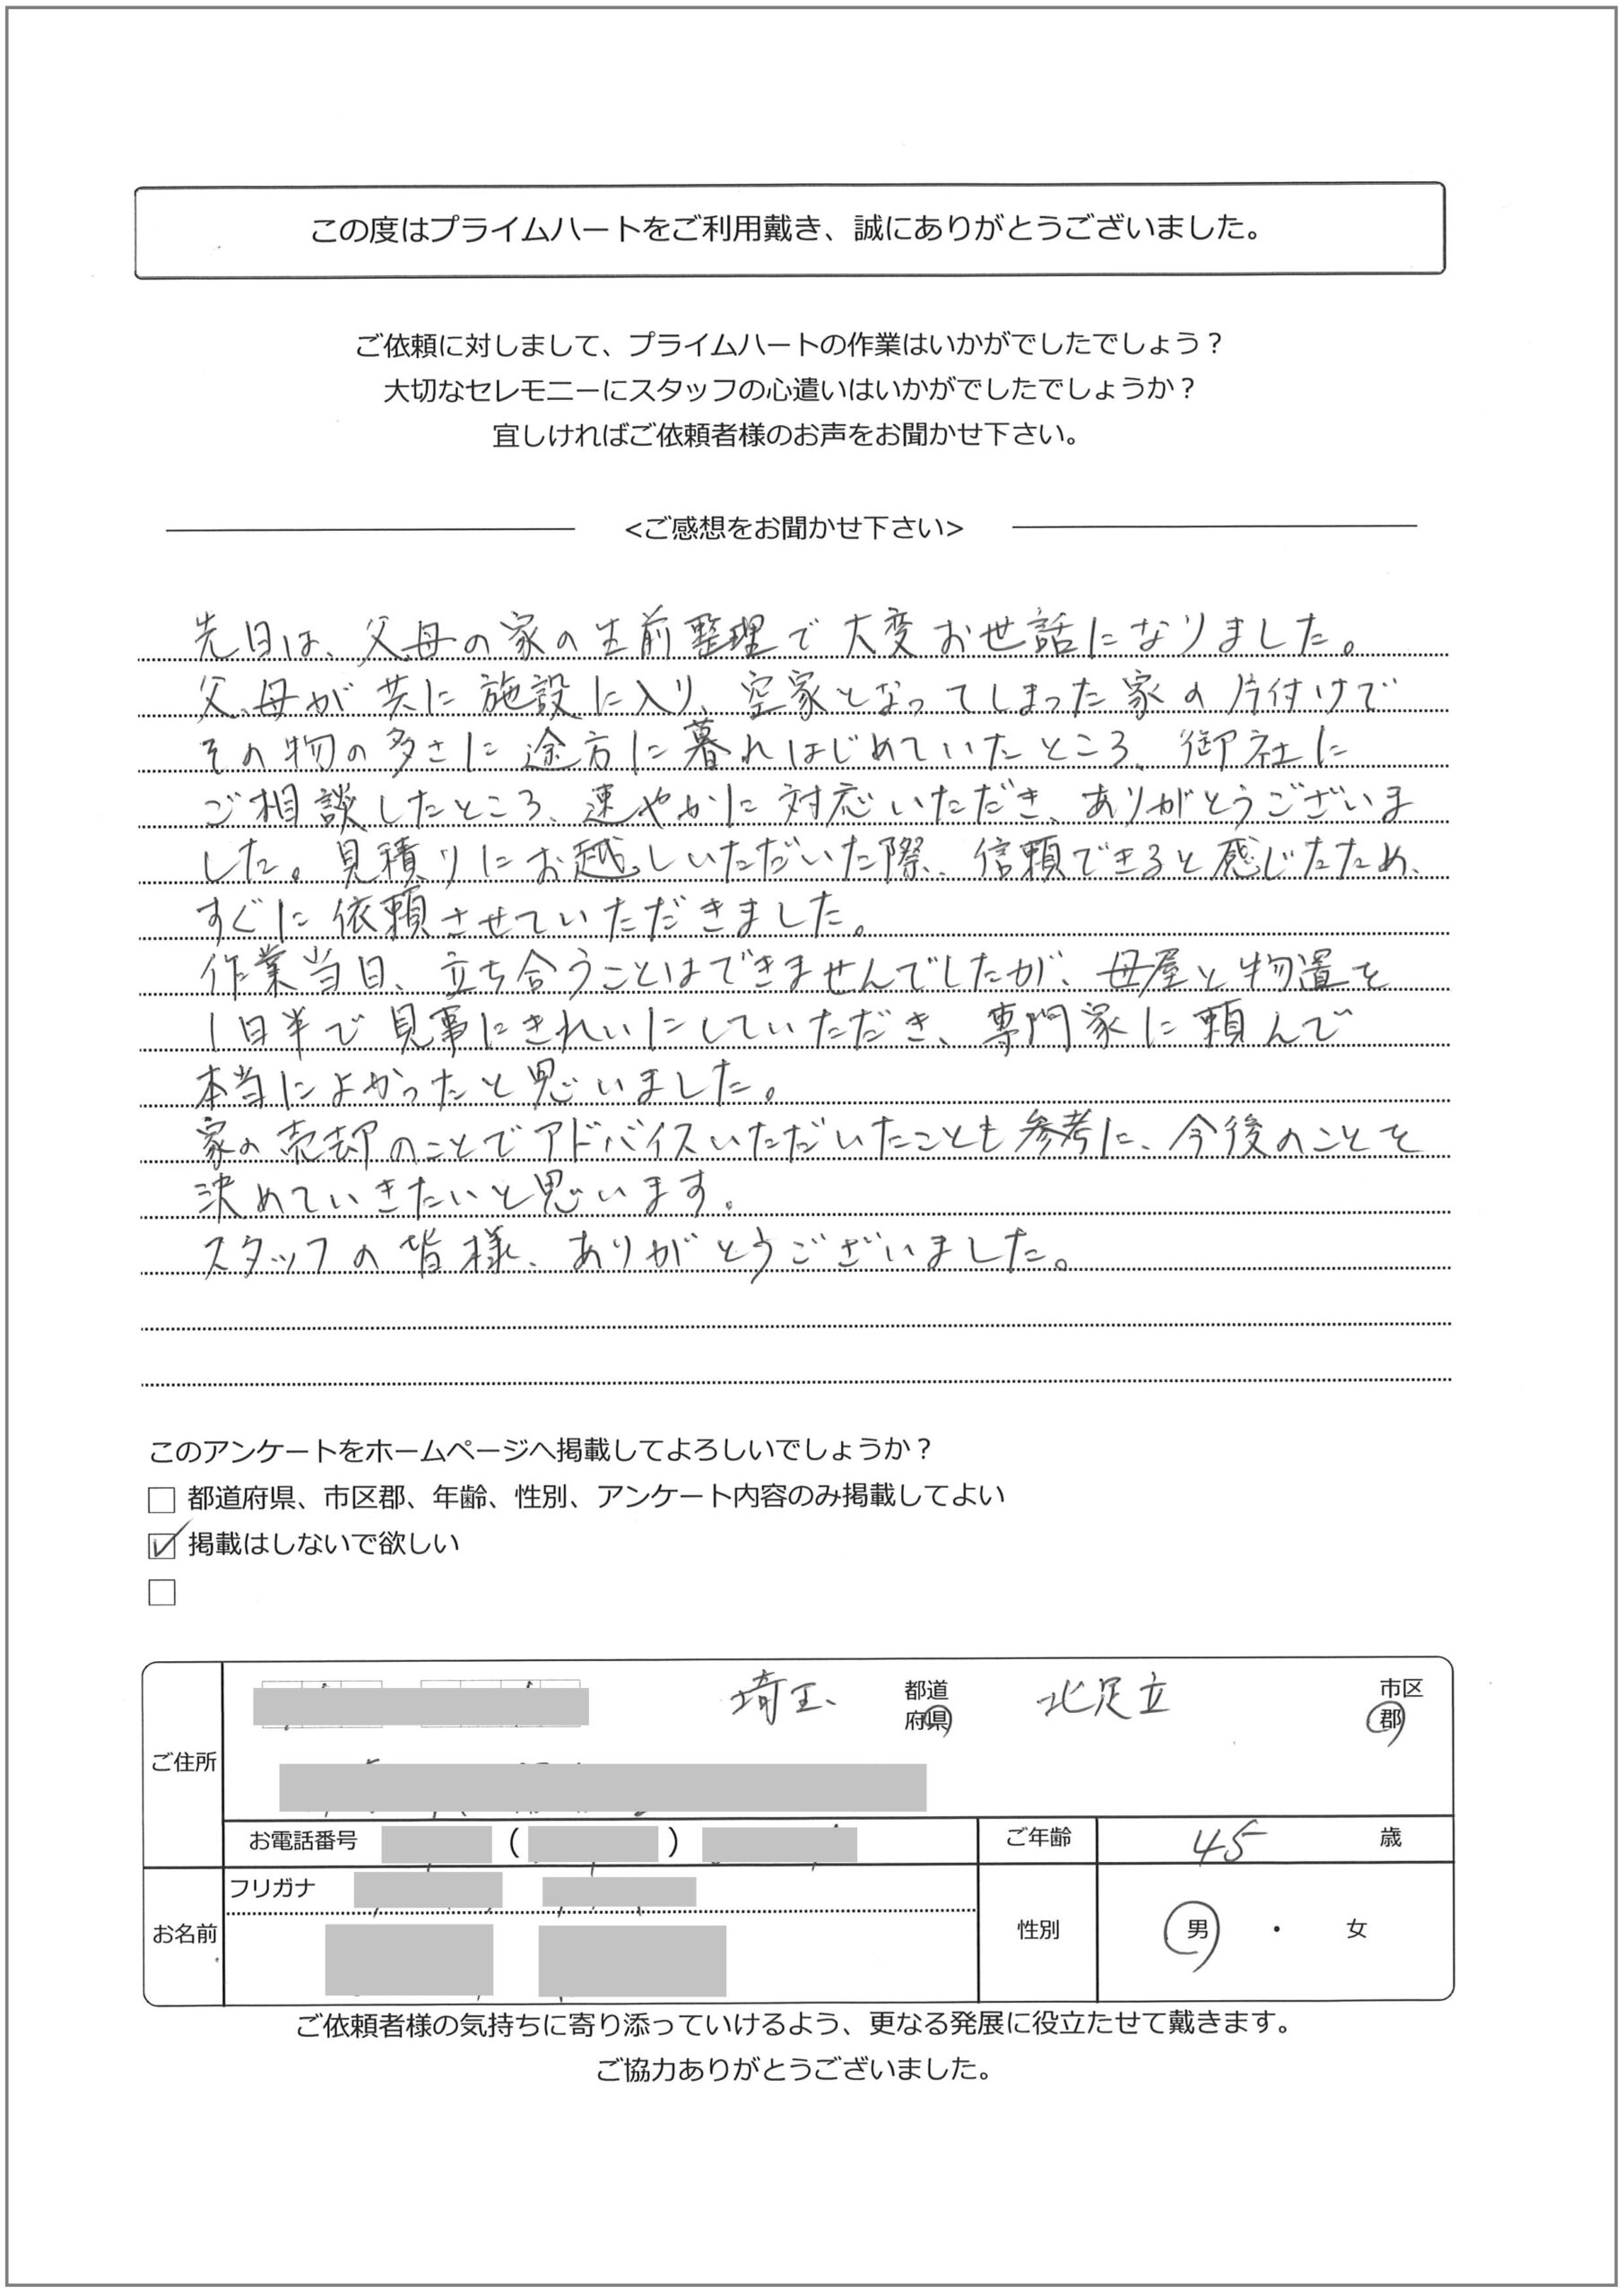 この度はプライムハートをご利用戴き、誠にありがとうございました。
ご依頼に対しまして、プライムハートの作業はいかがでしたでしょう？
大切なセレモニーにスタッフの心遣いはいかがでしたでしょうか？
宜しければご依頼者様のお声をお聞かせ下さい。
<ご感想をお聞かせ下さい>
先日は、父母の家の生前整理で大変お世話になりました。
父、母が共に施設に入り、空家となってしまった家の片付けで
その物の多さに途方に暮れはじめていたところ、御社に
ご相談したところ、速やかに対応いただき、ありがとうございま
した。見積りにお越しいただいた際、信頼できると感じたため、
すぐに依頼させていただきました。
作業当日、立ち合うことはできませんでしたが、母屋と物置を
1日半で見事にきれいにしていただき、専門家に頼んで
本当によかったと思いました。
家の売却のことでアドバイスいただいたことも参考に、今後のことを
決めていきたいと思います。
スタッフの皆様、ありがとうございました。
このアンケートをホームページへ掲載してよろしいでしょうか？
都道府県、市区郡、年齢、性別、アンケート内容のみ掲載してよい
掲載はしないで欲しい
ご住所
埼玉 都道府県 北足立 市区郡
お電話番号 ( )
ご年齢 45 歳
お名前
フリガナ
性別 男 ・ 女
ご依頼者様の気持ちに寄り添っていけるよう、更なる発展に役立たせて戴きます。
ご協力ありがとうございました。